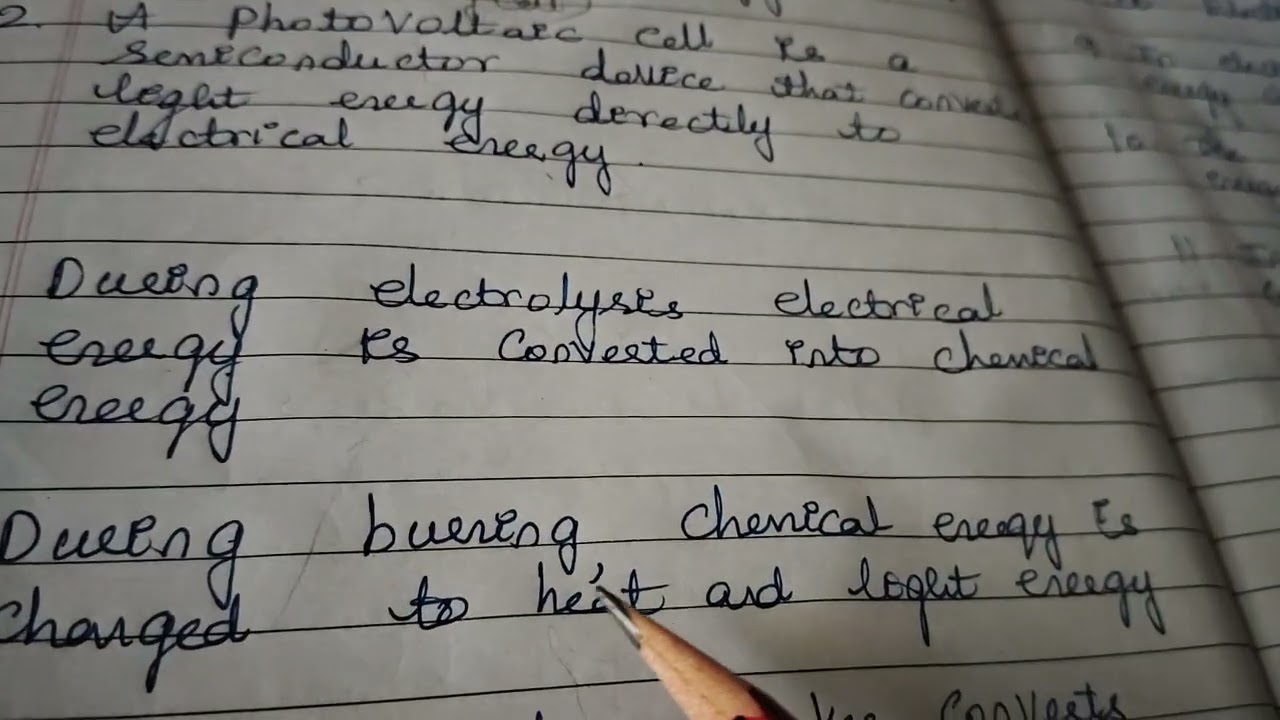 2. A Photovoltaic cell is a
Semiconductor device that conver
light energy directily to
electrical energy.
During electrolysis electrical
energy is Converted into chemical
energy
During burning Chemical energy is
Changed to heat and light energy
Converts